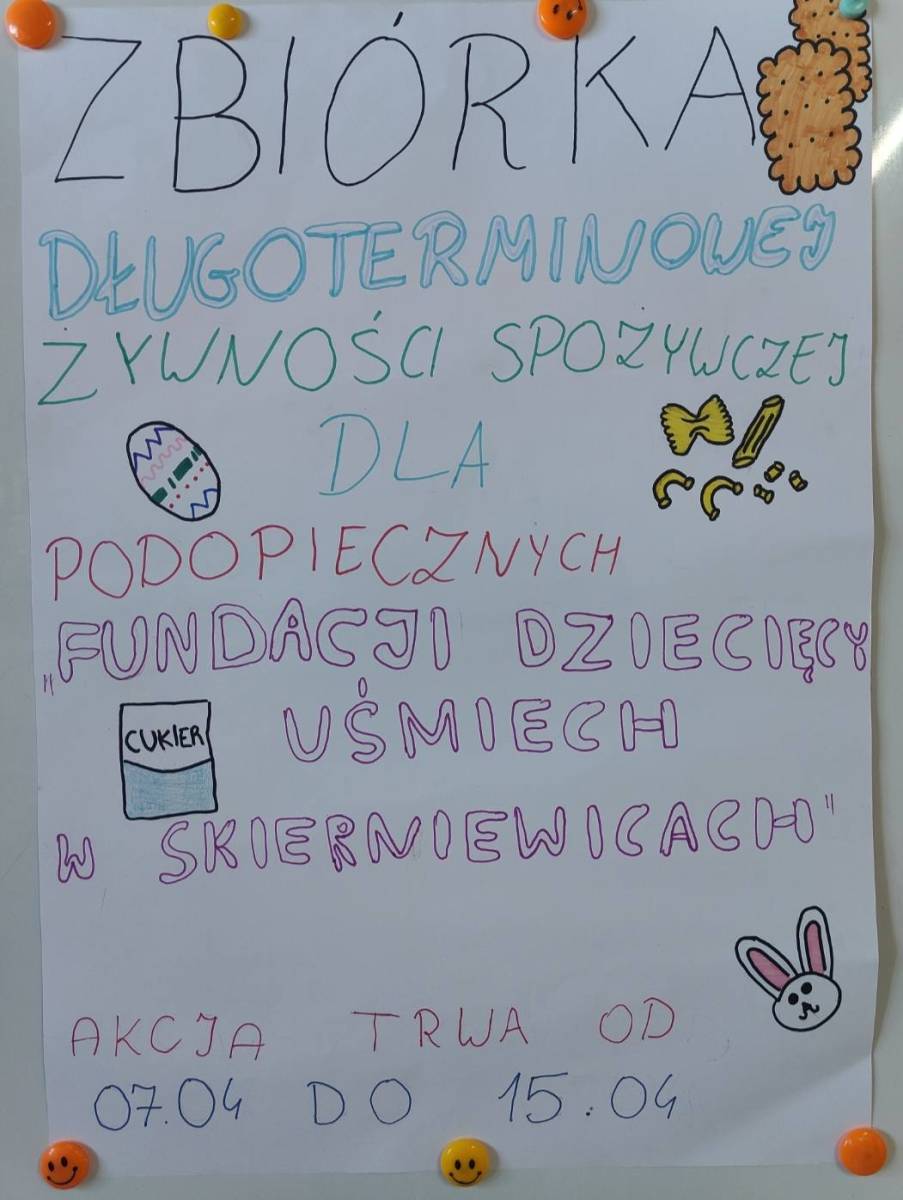 ZBIÓRKA
DŁUGOTERMINOWEJ
ŻYWNOŚCI SPOŻYWCZEJ
DLA
PODOPIECZNYCH
„FUNDACJI DZIECIĘCY
UŚMIECH
CUKIER
W SKIERNIEWICACH"
AKCJA TRWA OD
07.04 DO 15.04